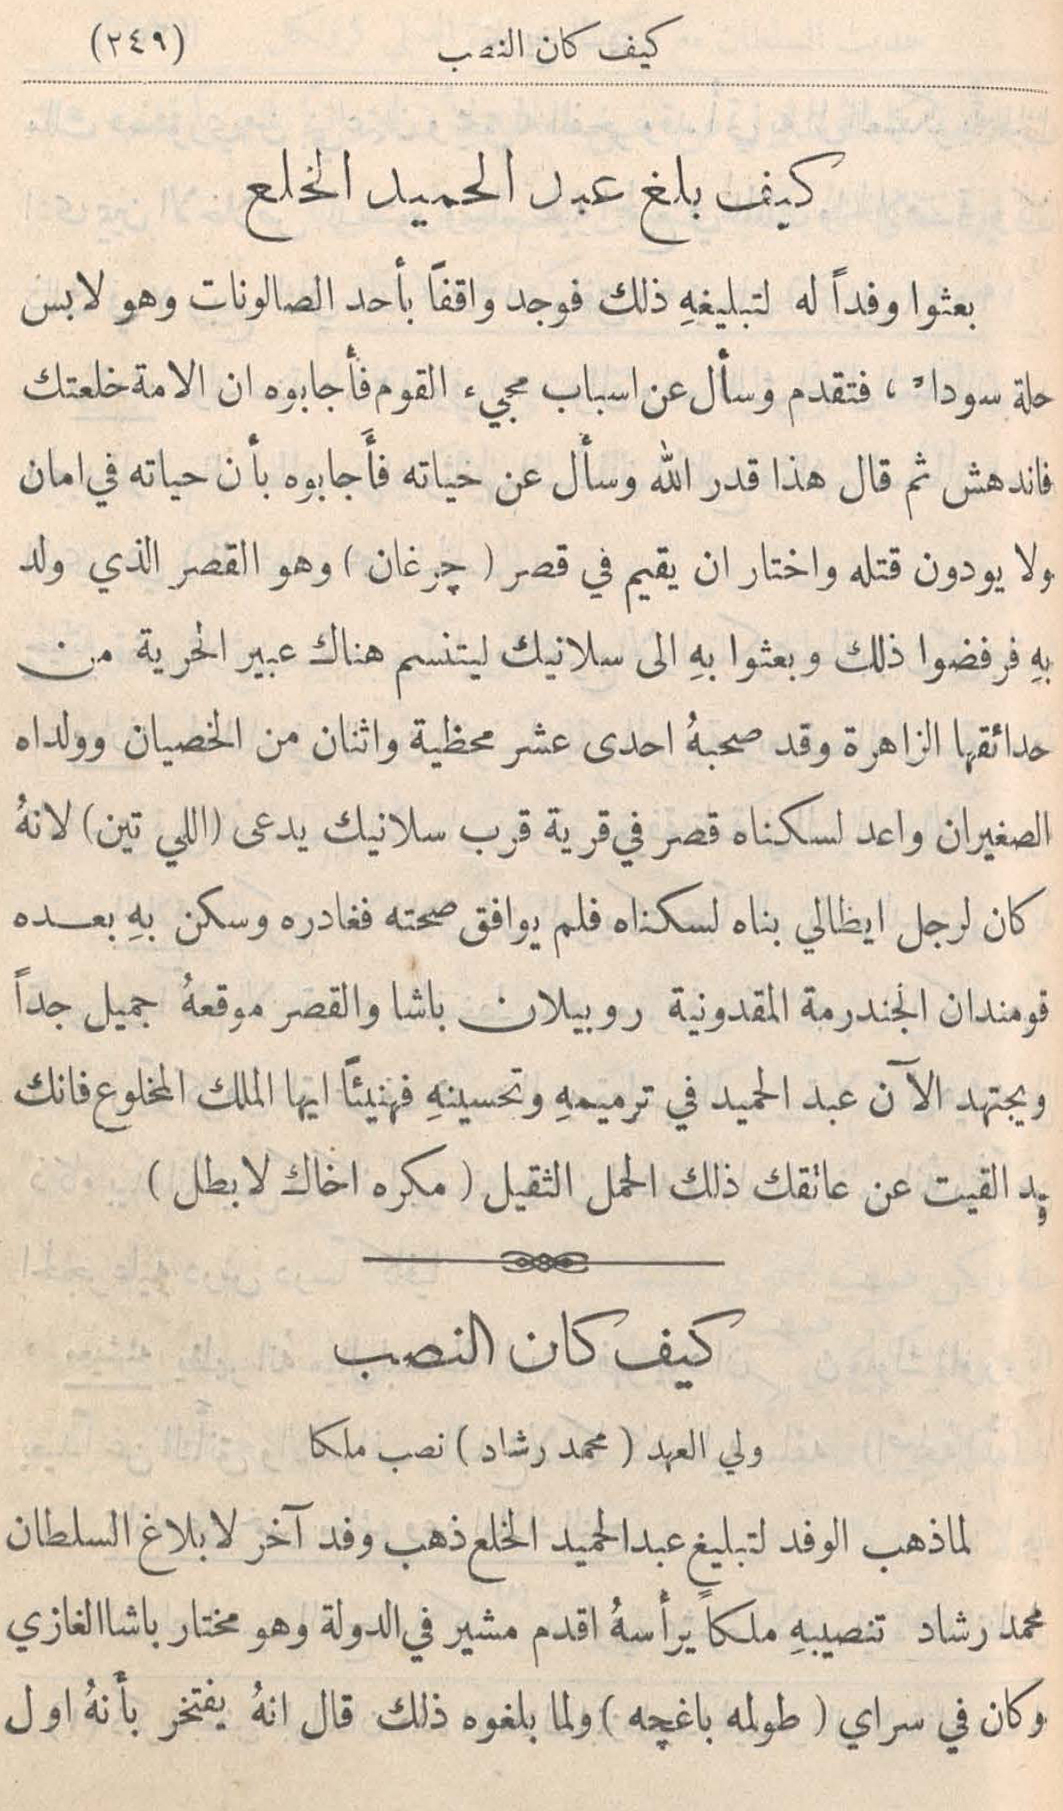 كيف كان النصب (٢٤٩)
كيف بلغ عبد الحميد الخلع
بعثوا وفداً له لتبليغهِ ذلك فوجد واقفاً بأحد الصالونات وهو لابس
حلة سوداء ، فتقدم وسأل عن اسباب مجيء القوم فأجابوه ان الامة خلعتك
فاندهش ثم قال هذا قدر الله وسأل عن حياته فأجابوه بأن حياته في امان
ولا يودون قتله واختار ان يقيم في قصر ( چرغان ) وهو القصر الذي ولد
بهِ فرفضوا ذلك وبعثوا بهِ الى سلانيك ليتنسم هناك عبير الحرية من
حدائقها الزاهرة وقد صحبهُ احدى عشر محظية واثنان من الخصيان وولداه
الصغيران واعد لسكناه قصر في قرية قرب سلانيك يدعى (اللي تين) لانهُ
كان لرجل ايطالي بناه لسكناه فلم يوافق صحته فغادره وسكن بهِ بعده
قومندان الجندرمة المقدونية روبيلان باشا والقصر موقعهُ جميل جداً
ويجتهد الآن عبد الحميد في ترميمهِ وتحسينهِ فهنيئاً ايها الملك المخلوع فانك
قد القيت عن عاتقك ذلك الحمل الثقيل ( مكره اخاك لا بطل )
كيف كان النصب
ولي العهد ( محمد رشاد ) نصب ملكا
لما ذهب الوفد لتبليغ عبد الحميد الخلع ذهب وفد آخر لابلاغ السلطان
محمد رشاد تنصيبهِ ملكاً يرأسهُ اقدم مشير في الدولة وهو مختار باشا الغازي
وكان في سراي ( طولمه باغچه ) ولما بلغوه ذلك قال انهُ يفتخر بأنهُ اول